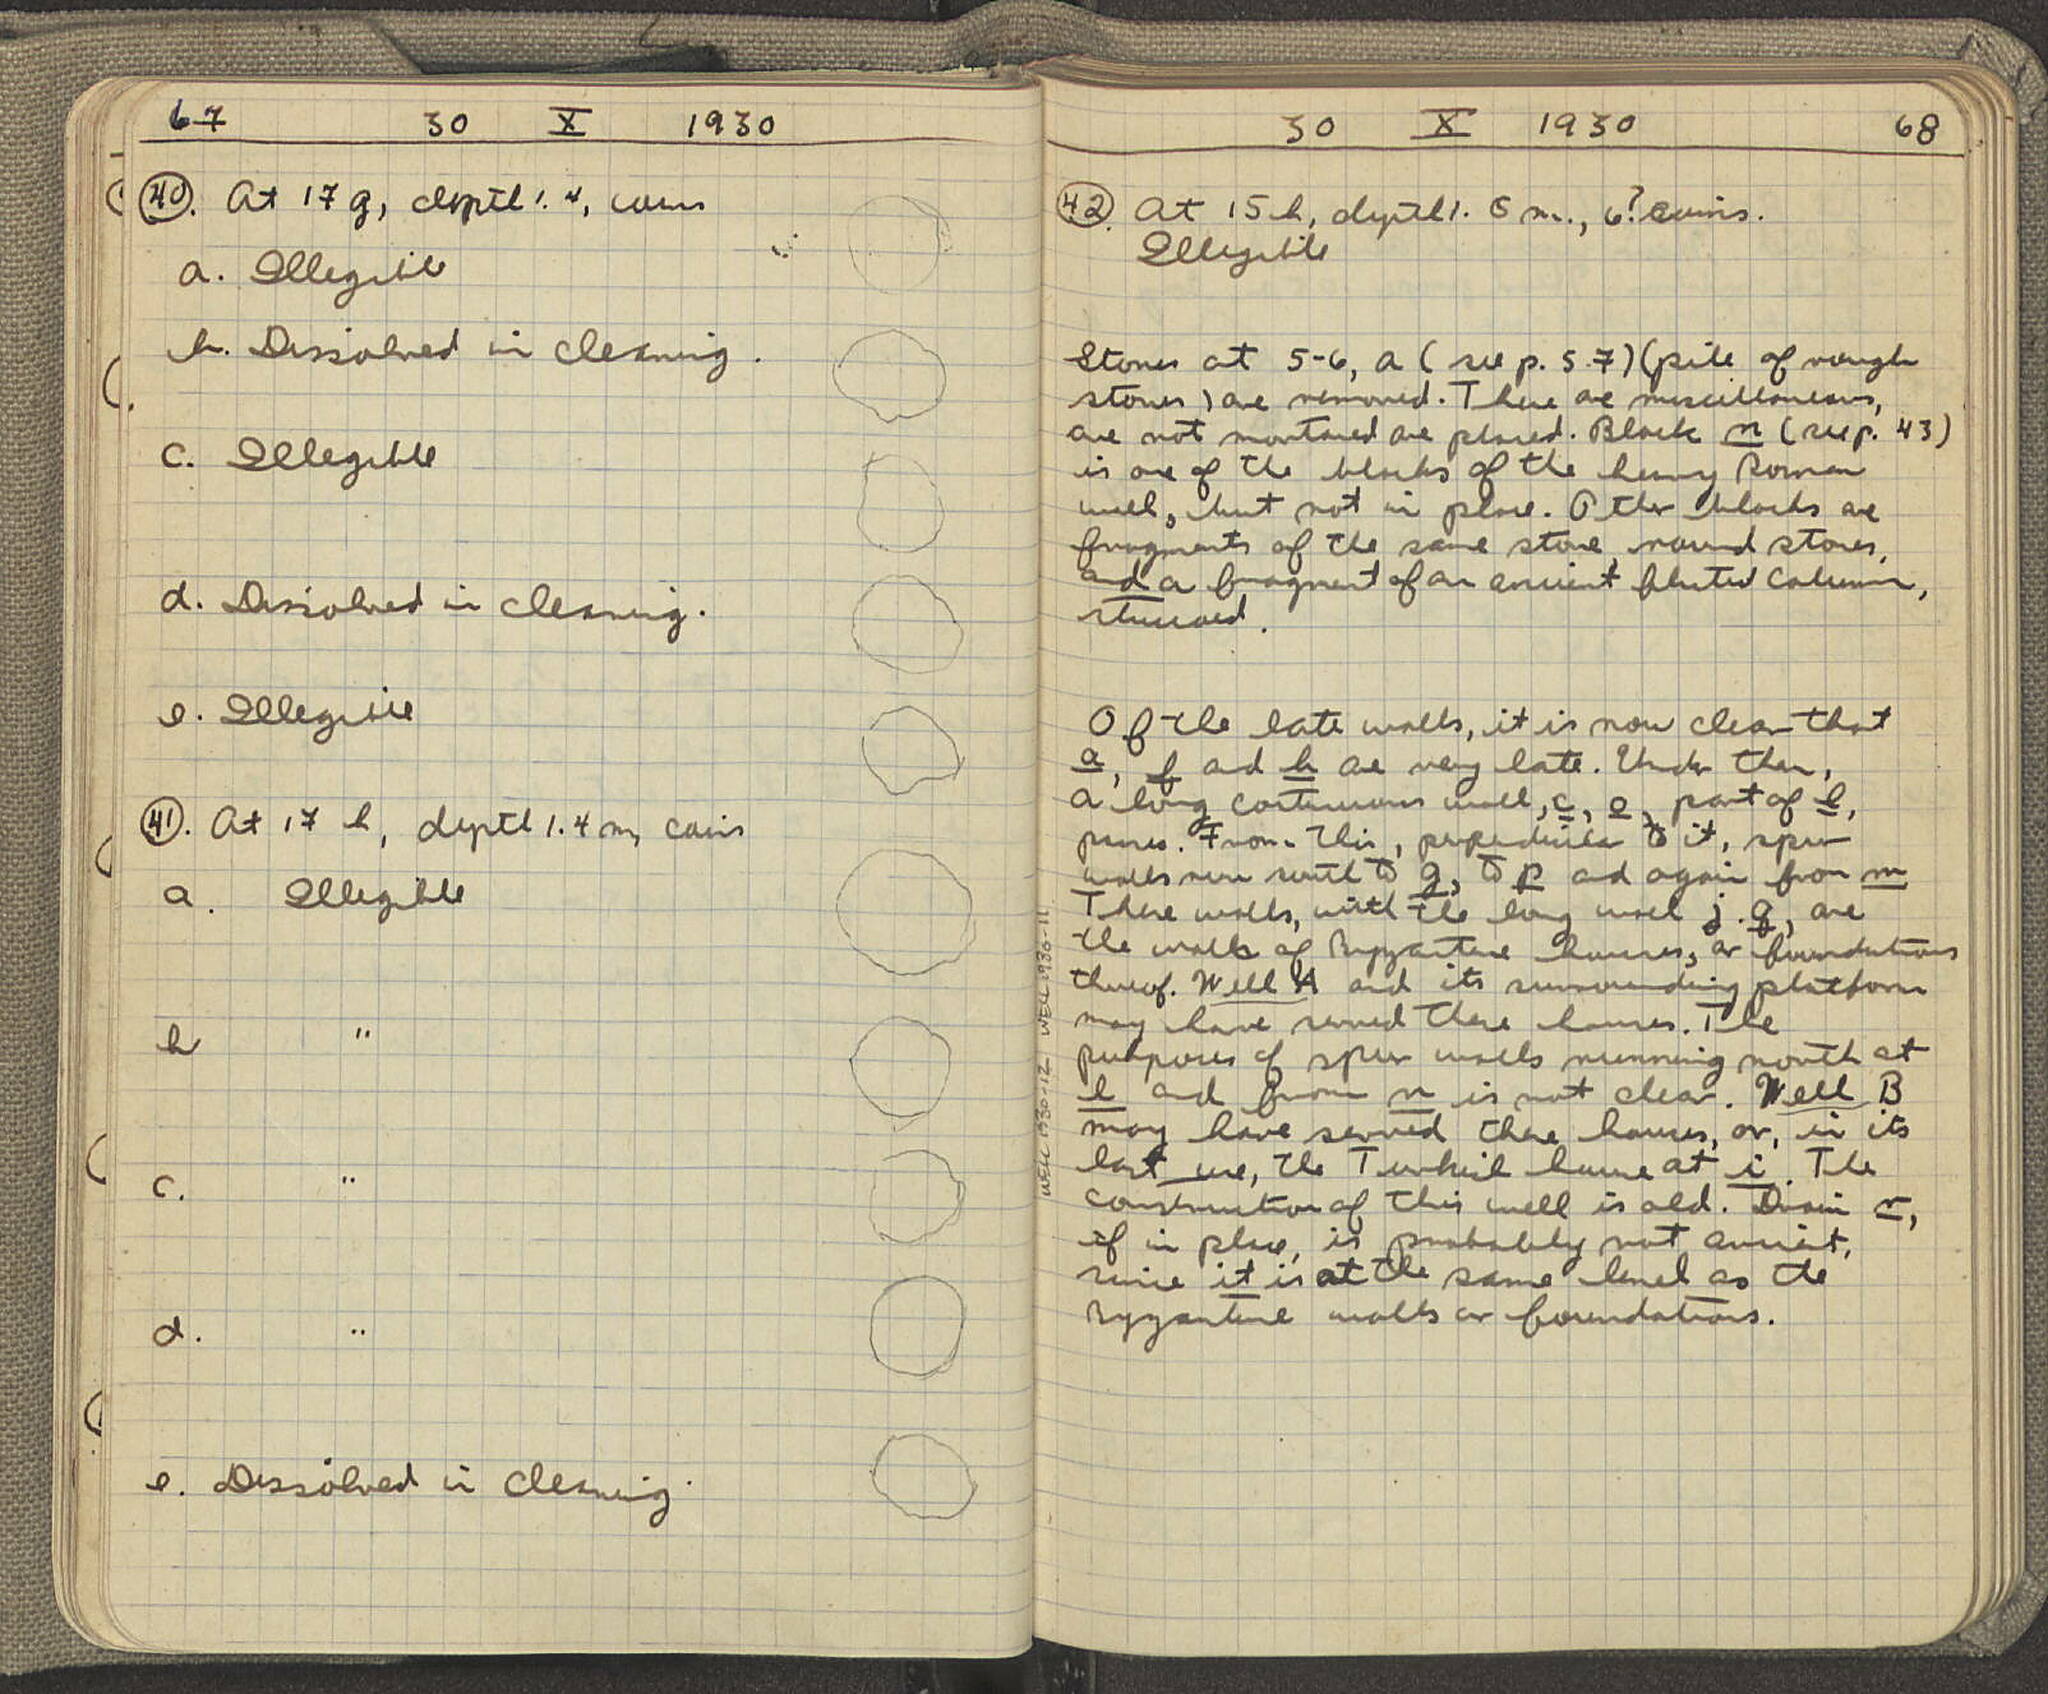 67 30 X 1930
40. At 17 g, depth 1.4, coins
a. Illegible
b. Dissolved in cleaning.
c. Illegible
d. Dissolved in cleaning.
e. Illegible
41. At 17 h, depth 1.4 m, coins
a. Illegible
b "
c. "
d. "
e. Dissolved in cleaning.
30 X 1930 68
42. At 15 h, depth 1. m., 6? coins.
Illegible
Stones at 5-6, a (see p. 57) (pile of rough
stones) are removed. These are miscellaneous,
are not mortared are placed. Block n (see p. 43)
is one of the blocks of the heavy Roman
wall, but not in place. Other blocks are
fragments of the same stone, round stones,
and a fragment of an ancient fluted column,
stuccoed.
Of the late walls, it is now clear that
a, f and h are very late. Under them,
a long continuous wall, c, e, part of l,
passes. From this, perpendicular to it, spur
walls run south to g, to p and again from m
These walls, with the long wall j.q, are
the walls of Byzantine houses, or foundations
thereof. Well A and its surrounding platform
may have served these houses. The
purposes of spur walls running north at
l and from n is not clear. Well B
may have served these houses, or, in its
last use, the Turkish house at i. The
construction of this well is old. Drain r,
if in place, is probably not ancient,
since it is at the same level as the
Byzantine walls or foundations.
WELL 1930-12 WELL 1930-11